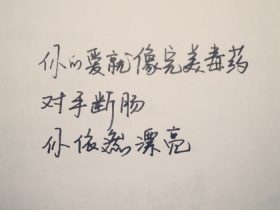 你的爱就像完美毒药
对手断肠
你依然漂亮